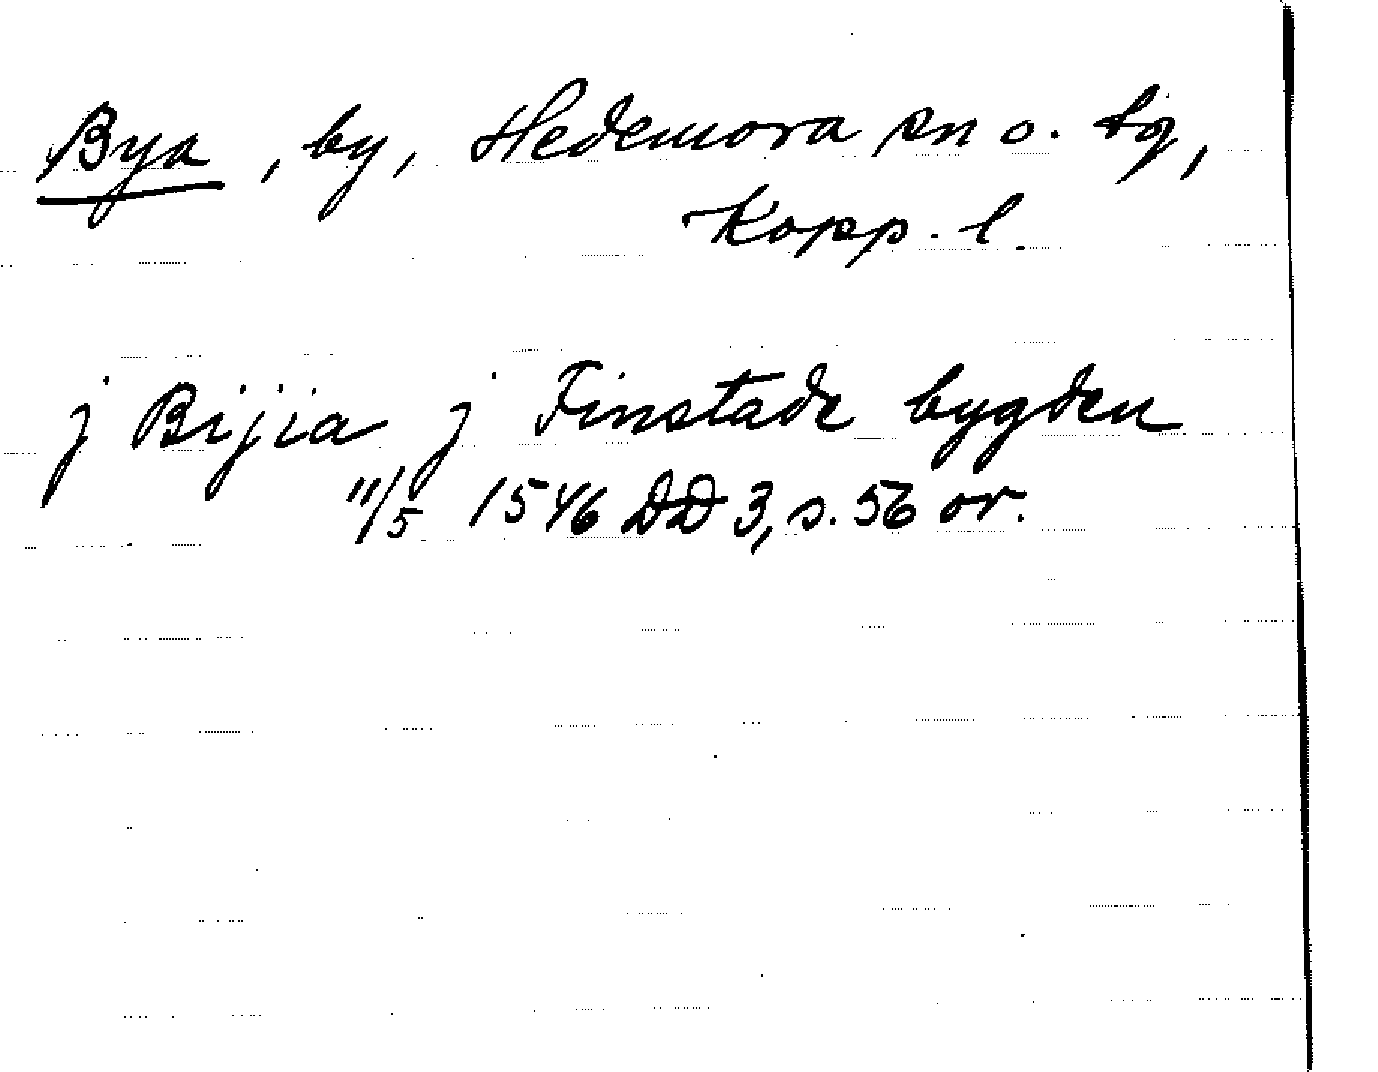 Bya, by, Hedemora sn o. tg,
Kopp. l.
j Bijia j Finstade bygden
11/5 1546 DD 3, s. 56 or.